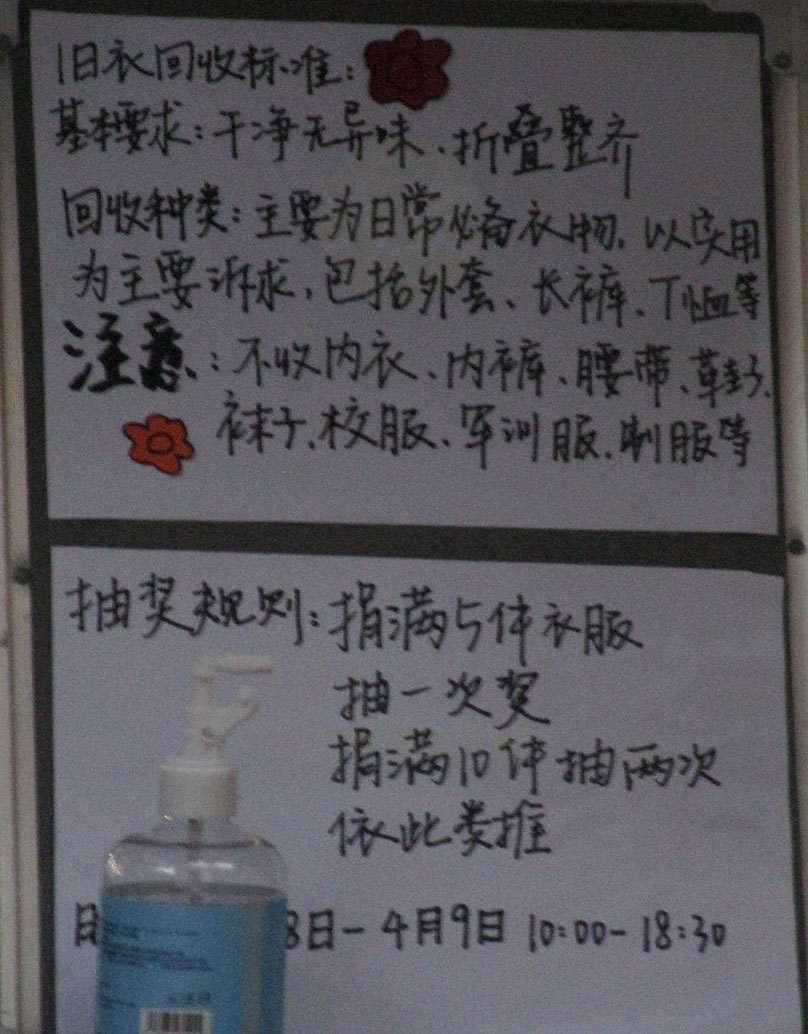 旧衣回收标准:
基本要求:干净无异味、折叠整齐
回收种类:主要为日常必备衣物,以实用
为主要诉求,包括外套、长裤、T恤等
注意:不收内衣、内裤、腰带、鞋子、
袜子、校服、军训服、制服等
抽奖规则:捐满5件衣服
抽一次奖
捐满10件抽两次
依此类推
日 8日-4月9日 10:00-18:30